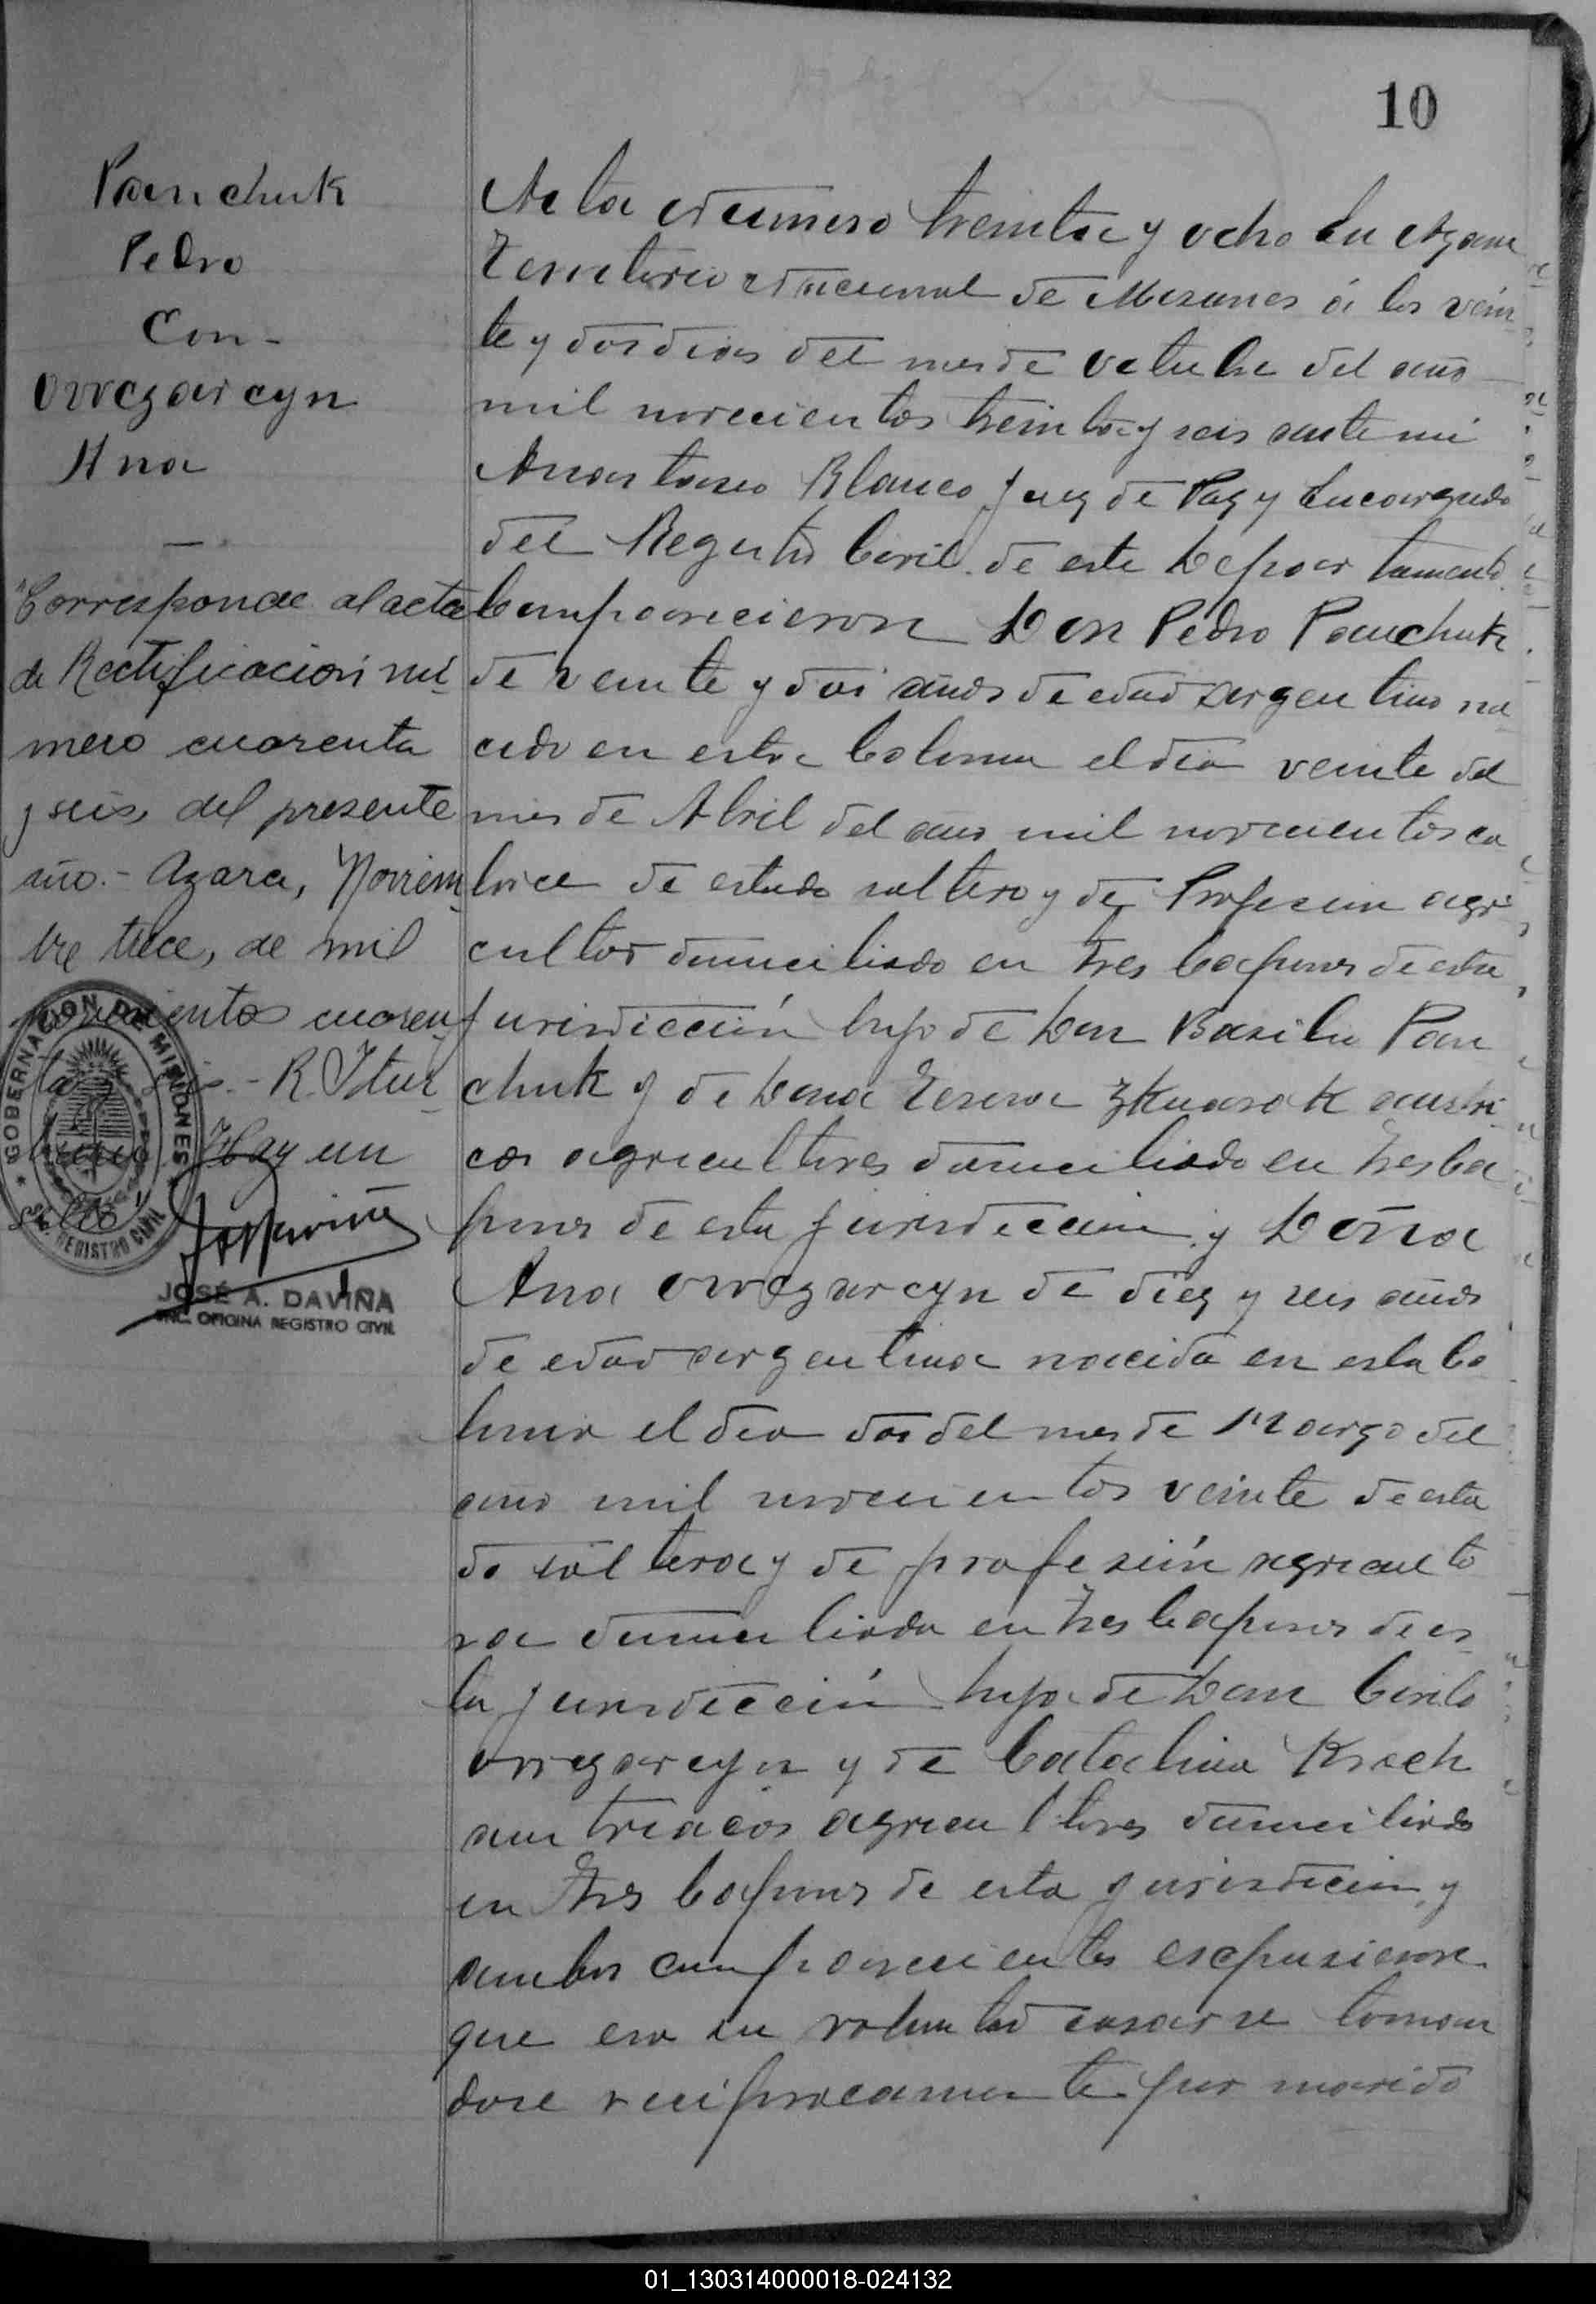 10
Panchuk
Pedro
Con-
Orregarcyn
Ana
"Corresponde al acta
de Rectificación nú-
mero cuarenta
y seis, del presente
año.- Azara, Noviem-
bre trece, de mil
novecientos cuaren-
ta y seis.- R. Itur
Hay un
sello"
GOBERNACION DE MISIONES
REGISTRO CIVIL
JOSÉ A. DAVIÑA
ENC. OFICINA REGISTRO CIVIL
Acta número treinta y ocho En Azara
Territorio Nacional de Misiones á los vein
te y dos dias del mes de Octubre del año
mil novecientos treinta y seis ante mi
Anastasio Blanco Juez de Paz y Encargado
del Registro Civil de este Departamento
Comparecieron Don Pedro Panchuk
de veinte y dos años de edad argentino na
cido en esta Colonia el dia veinte del
mes de Abril del año mil novecientos ca
torce de estado soltero y de Profesion agri
cultor domiciliado en Tres Capones de esta
jurisdicción hijo de Don Basilio Pan
chuk y de Dona Teresa Zkuarok austri
cos agricultores domiciliado en Tres Ca
pones de esta jurisdeccion y Doña
Ana Orregarcyn de diez y seis años
de edad argentina nacida en esta Co
lonia el dia dos del mes de Marzo del
año mil novecientos veinte de esta
do soltera y de profesión agriculto
ra domiciliada en Tres Capones de es
ta jurisdección hija de Don Cirilo
Orregarcyn y de Catalina Krech
austriacos agricultores domiciliados
en Tres Capones de esta jurisdicion y
ambos comparecientes expusieron
que era su voluntad casarse toman
dose reciprocamente por marido
01_130314000018-024132